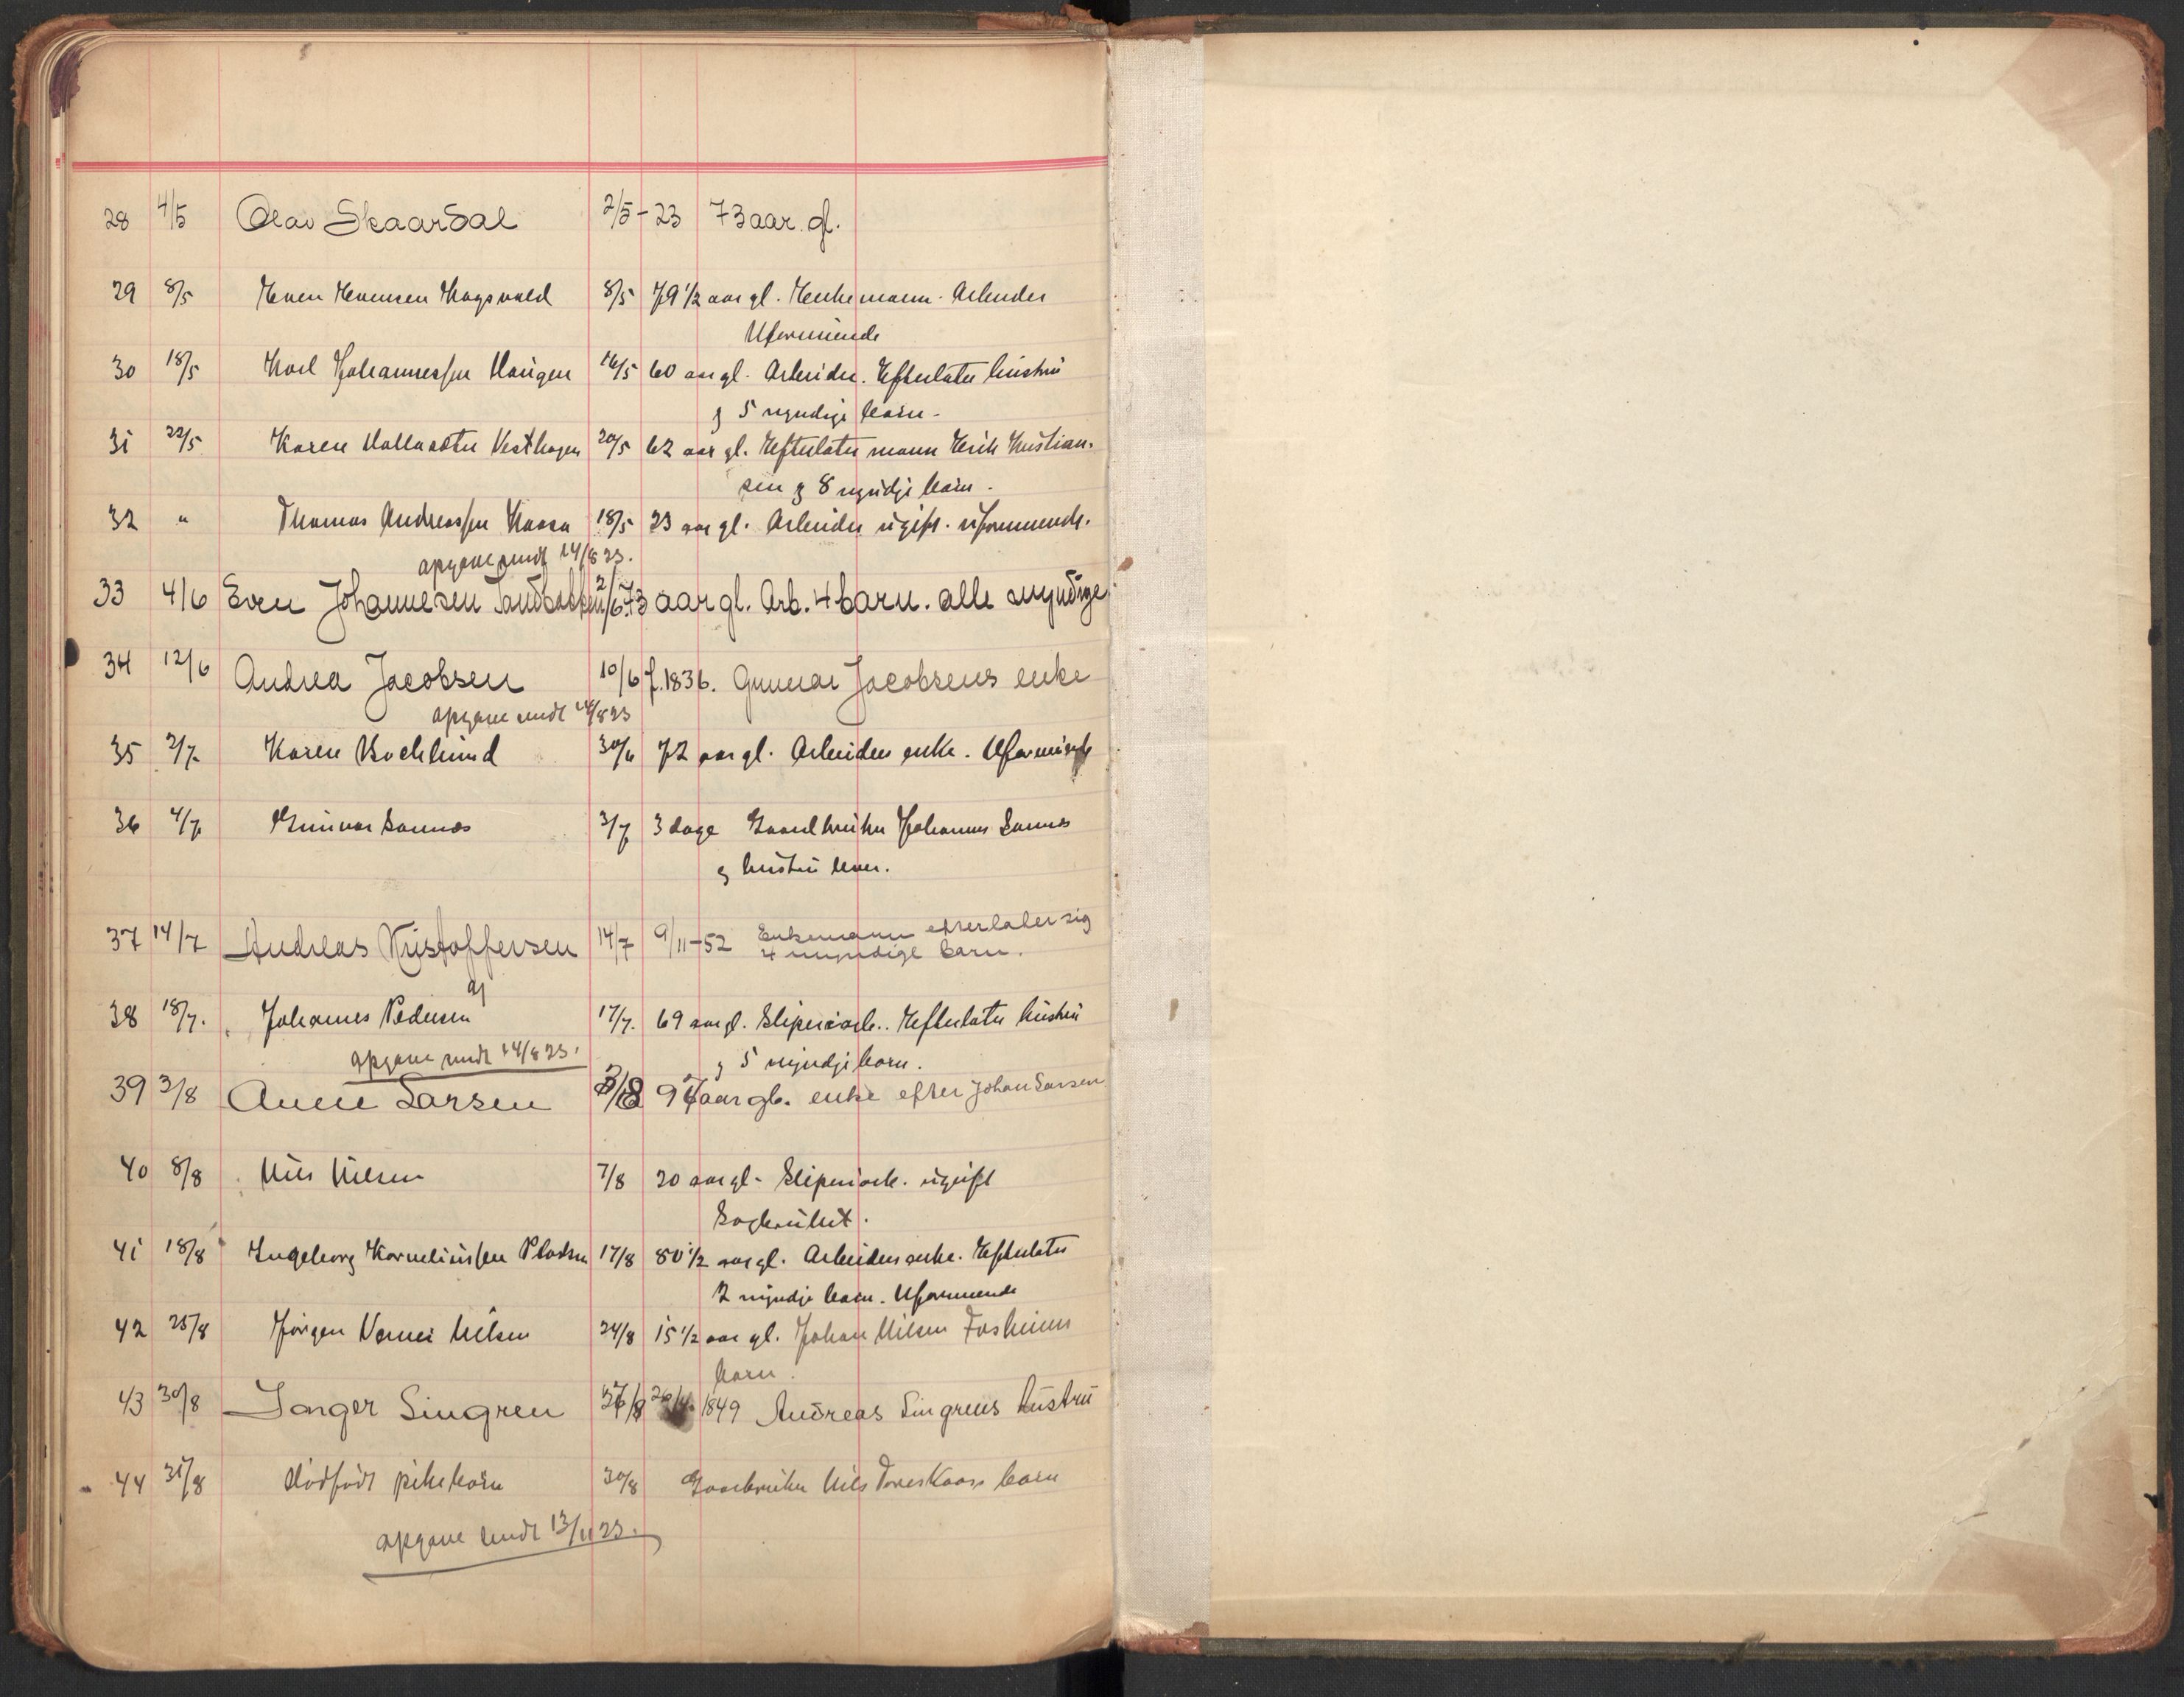 28 4/5 Olav Skaardal 2/5-23 73 aar. gl.
29 8/5 Even Evensen 8/5 79 1/2 aar gl. Enkemann. Arbeider
Uformuende
30 18/5 Karl Johannessen Haugen 16/5 60 aar gl. Arbeider. Efterlater hustru
og 5 myndige barn.
31 22/5 Karen Vesthagen 20/5 62 aar gl. Efterlater mann Erik Kristian-
sen og 8 myndige barn.
32 " Thomas Andreassen Kaasa 18/5 23 aar gl. Arbeider ugift. uformuende.
opgave sendt 14/8 23.
33 4/6 Even Johannesen Sandbakken 2/6 73 aar gl. Arb. 4 barn. alle myndige
34 12/6 Andrea Jacobsen 10/6 f. 1836. Gunnar Jacobsens enke
opgave sendt 14/8 23
35 2/7 Karen 30/6 72 aar gl. Arbeiders enke. Uformuende
36 4/7 Gunnar Sannes 3/7 3 dage Gaardbruker Johannes Sannes
og hustru barn.
37 14/7 Andreas Kristoffersen 14/7 9/11-52 Enkemann efterlater sig
4 myndige barn.
38 18/7. Johannes Pedersen 17/7. 69 aar gl. Sliperiarb.. Efterlater hustru
og 5 myndige barn.
opgave sendt 14/8 23.
39 3/8 Anne Larsen 3/8 97 aar gl. enke efter Johan Larsen
40 8/8 Nils Nilsen 7/8 20 aar gl. Sliperiarb. ugift
41 18/8 Ingeborg Korneliussen Pladsen 17/8 80 1/2 aar gl. Arbeiders enke. Efterlater
2 myndige barn. Uformuende
42 25/8 Jørgen Verner Nilsen 24/8 15 1/2 aar gl. Johan Nilsen Fosheims
barn.
43 30/8 Janger Singren 27/8 26/11. 1849 Andreas Singrens hustru
44 31/8 Dødfødt pikebarn 30/8 Gaardbruker Nils barn
opgave sendt 13/11 23.